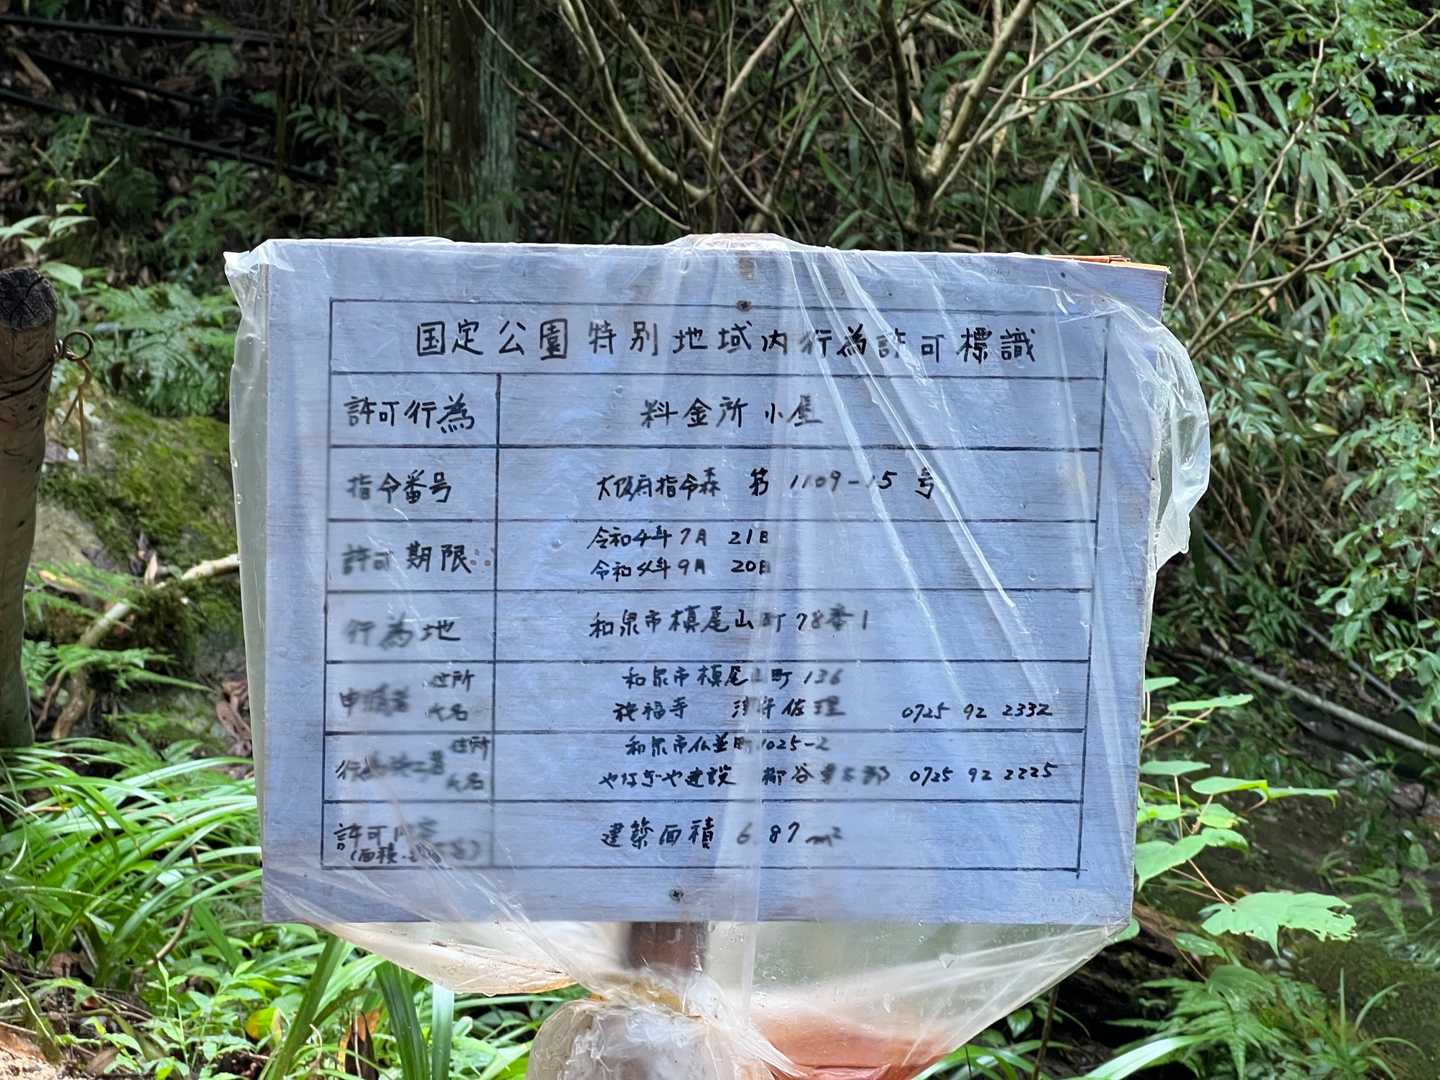 国定公園特別地域内行為許可標識
許可行為 料金所小屋
指令番号 大阪府指令森 第1109-15号
許可期限 令和4年7月21日
令和4年9月20日
行為地 和泉市槙尾山町78番1
申請者 住所 和泉市槙尾山町136
氏名 施福寺 佐理 0725 92 2332
住所 和泉市仏並町1025-2
氏名 やなぎや建設 柳谷 0725 92 2225
許可内容 建築面積 6.87m²
(面積